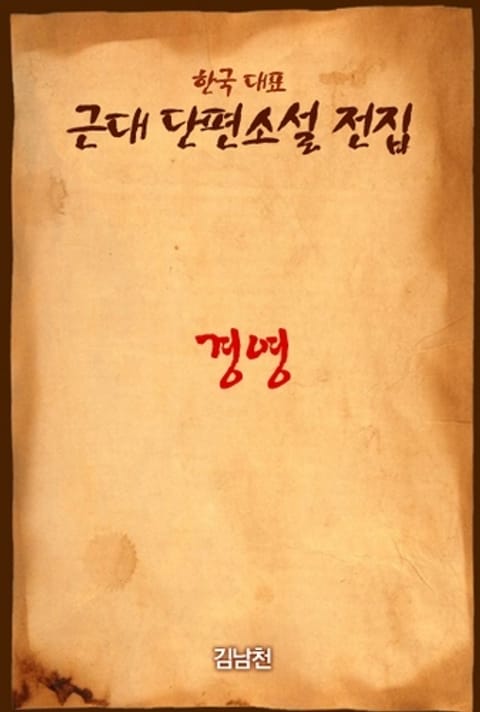 한국 대표
근대 단편소설 전집
경영
김남천